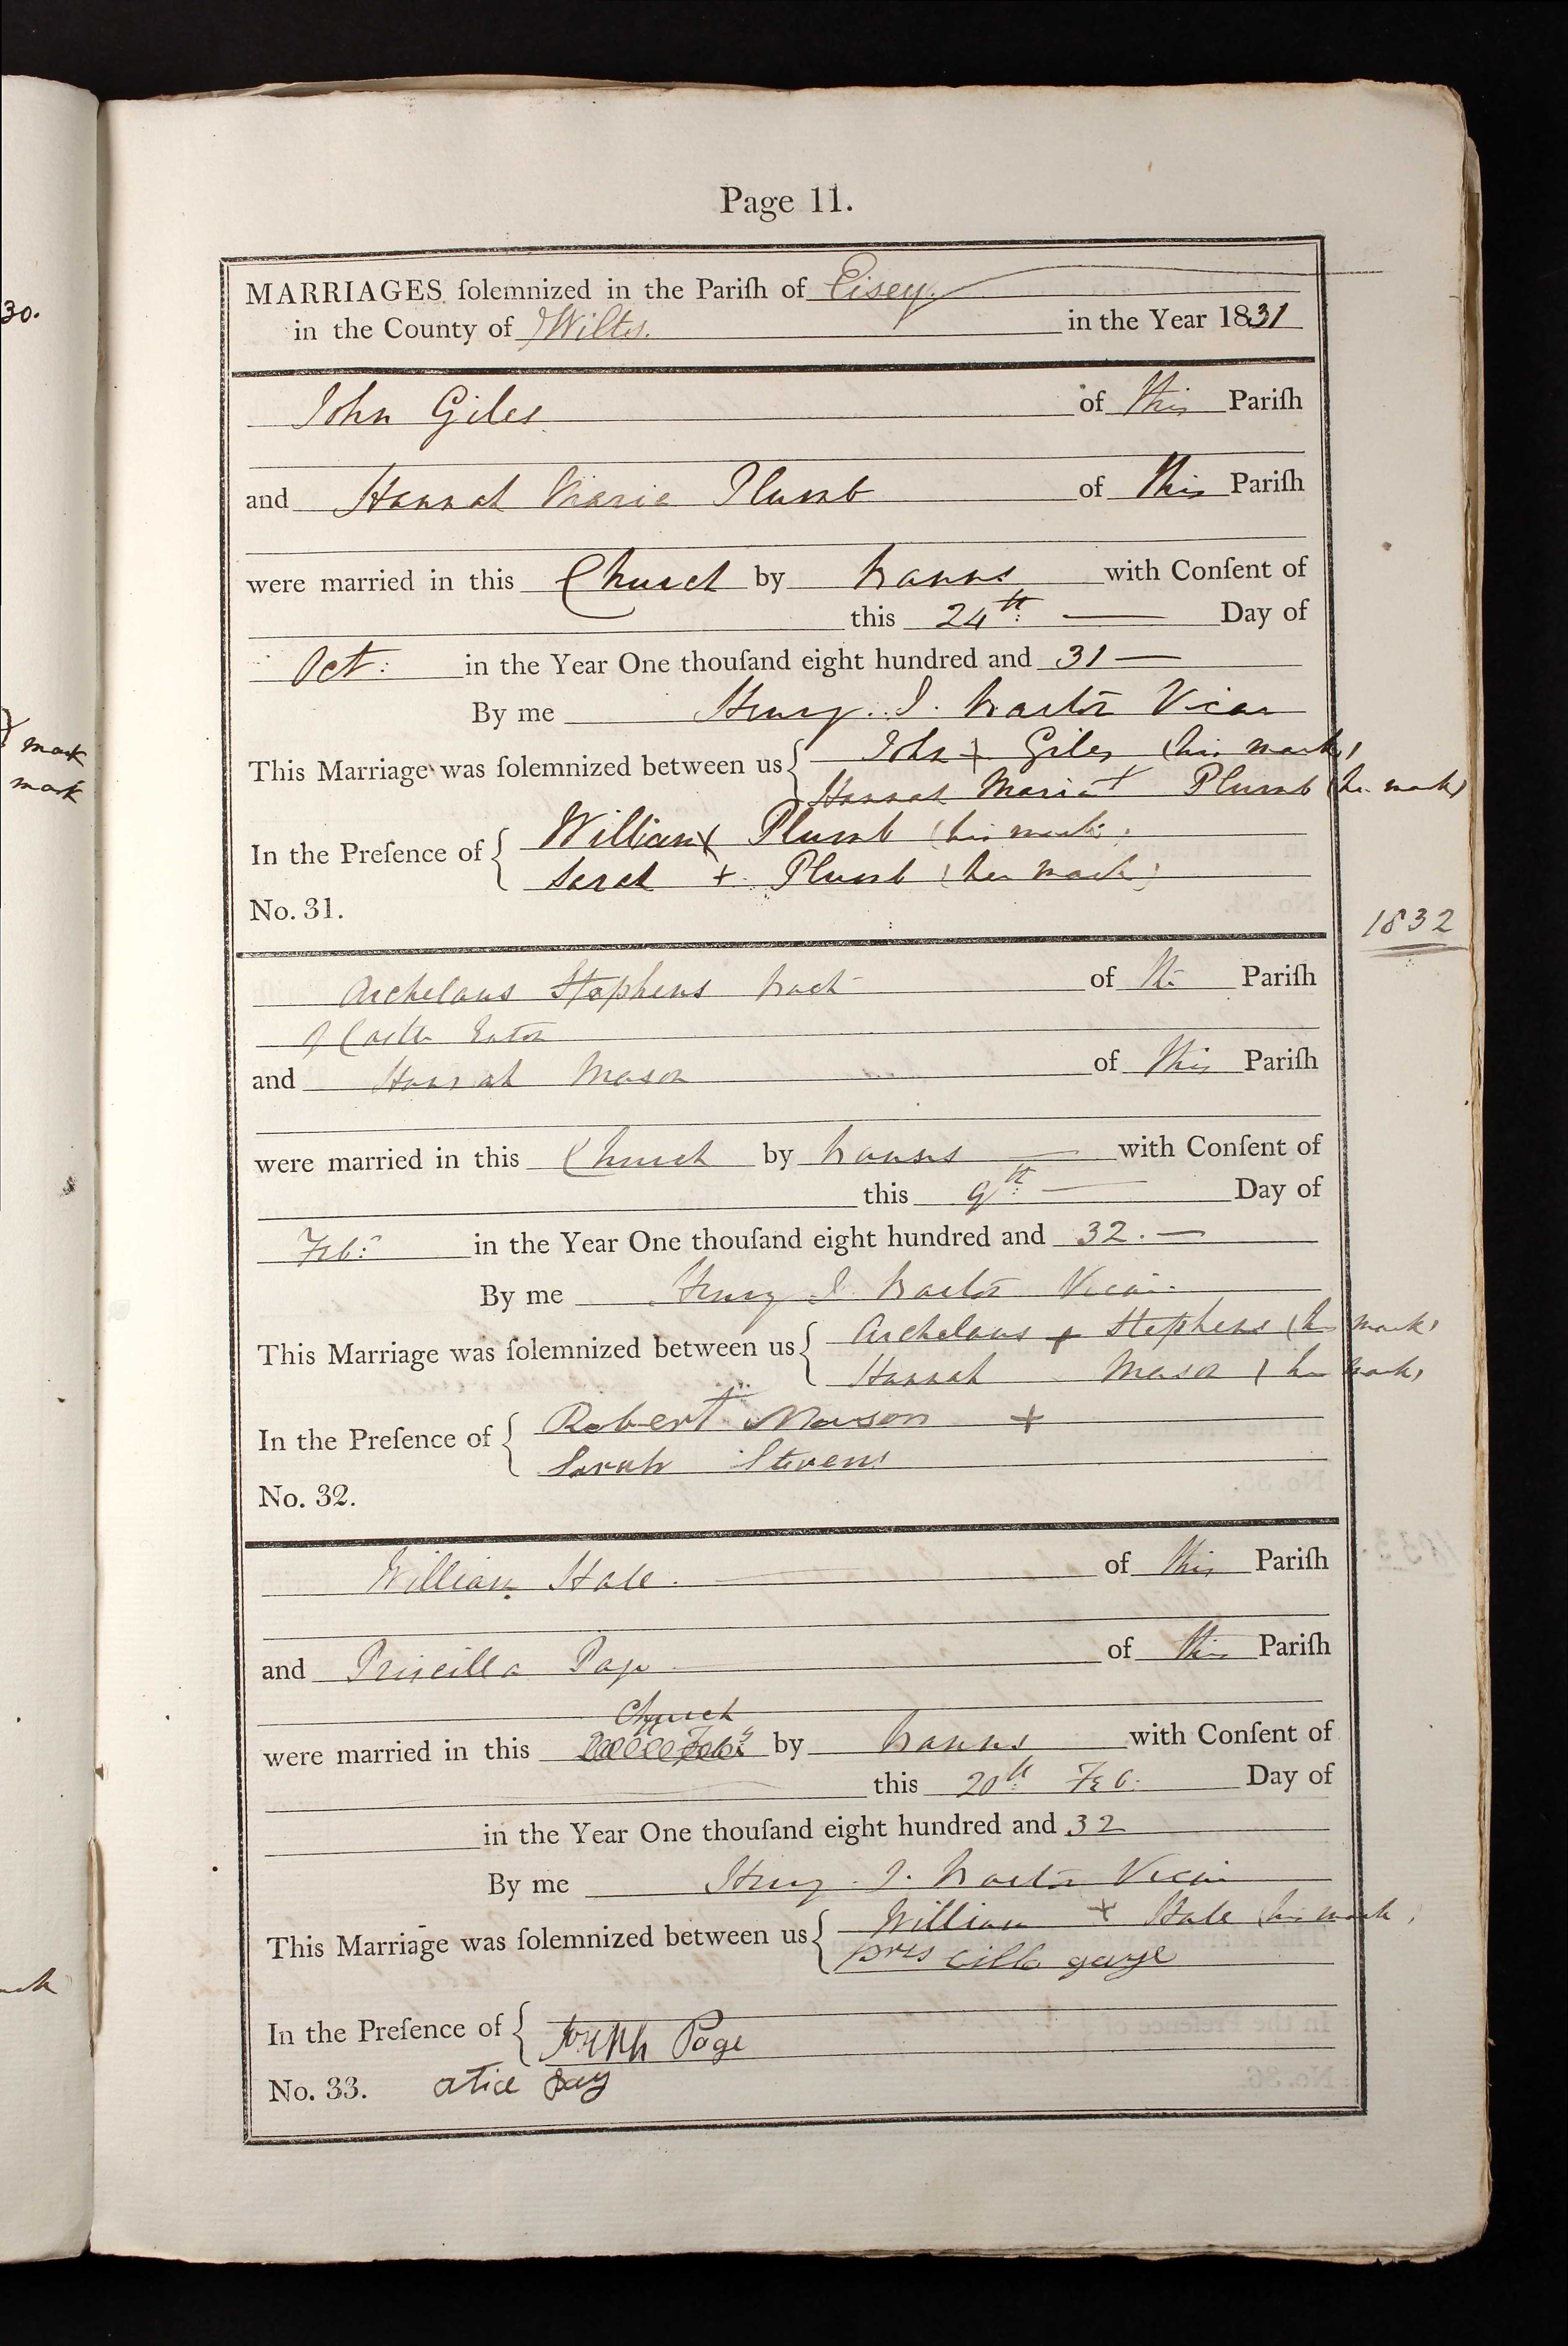 30.
mark
mark
Page 11.
MARRIAGES ſolemnized in the Pariſh of Eisey.
in the County of Wilts. in the Year 1831
John Giles of this Pariſh
and Hannah Maria Plumb of this Pariſh
were married in this Church by banns with Conſent of
this 24th Day of
Oct: in the Year One thouſand eight hundred and 31 —
By me Henry. J. Vicar
This Marriage was ſolemnized between us { John + Giles (his mark)
Hannah Maria + Plumb (her mark)
In the Preſence of { William + Plumb (his mark)
Sarah + Plumb (her mark)
No. 31.
1832
Archelaus Stephens of the Pariſh
of Castle Eaton
and Hannah Mason of this Pariſh
were married in this Church by banns — with Conſent of
this 9th — Day of
Feb: in the Year One thouſand eight hundred and 32. —
By me Henry J. Vicar
This Marriage was ſolemnized between us { Archelaus + Stephens (his mark)
Hannah Mason (her mark)
In the Preſence of { Robert Mason +
Sarah Stevens
No. 32.
William Hale. of this Pariſh
and Priscilla Page of this Pariſh
Church
were married in this by banns with Conſent of
this 20th Feb. Day of
in the Year One thouſand eight hundred and 32
By me Henry. J. Vicar
This Marriage was ſolemnized between us { William + Hale (his mark)
pris cilla
In the Preſence of { Joseph Page
No. 33.